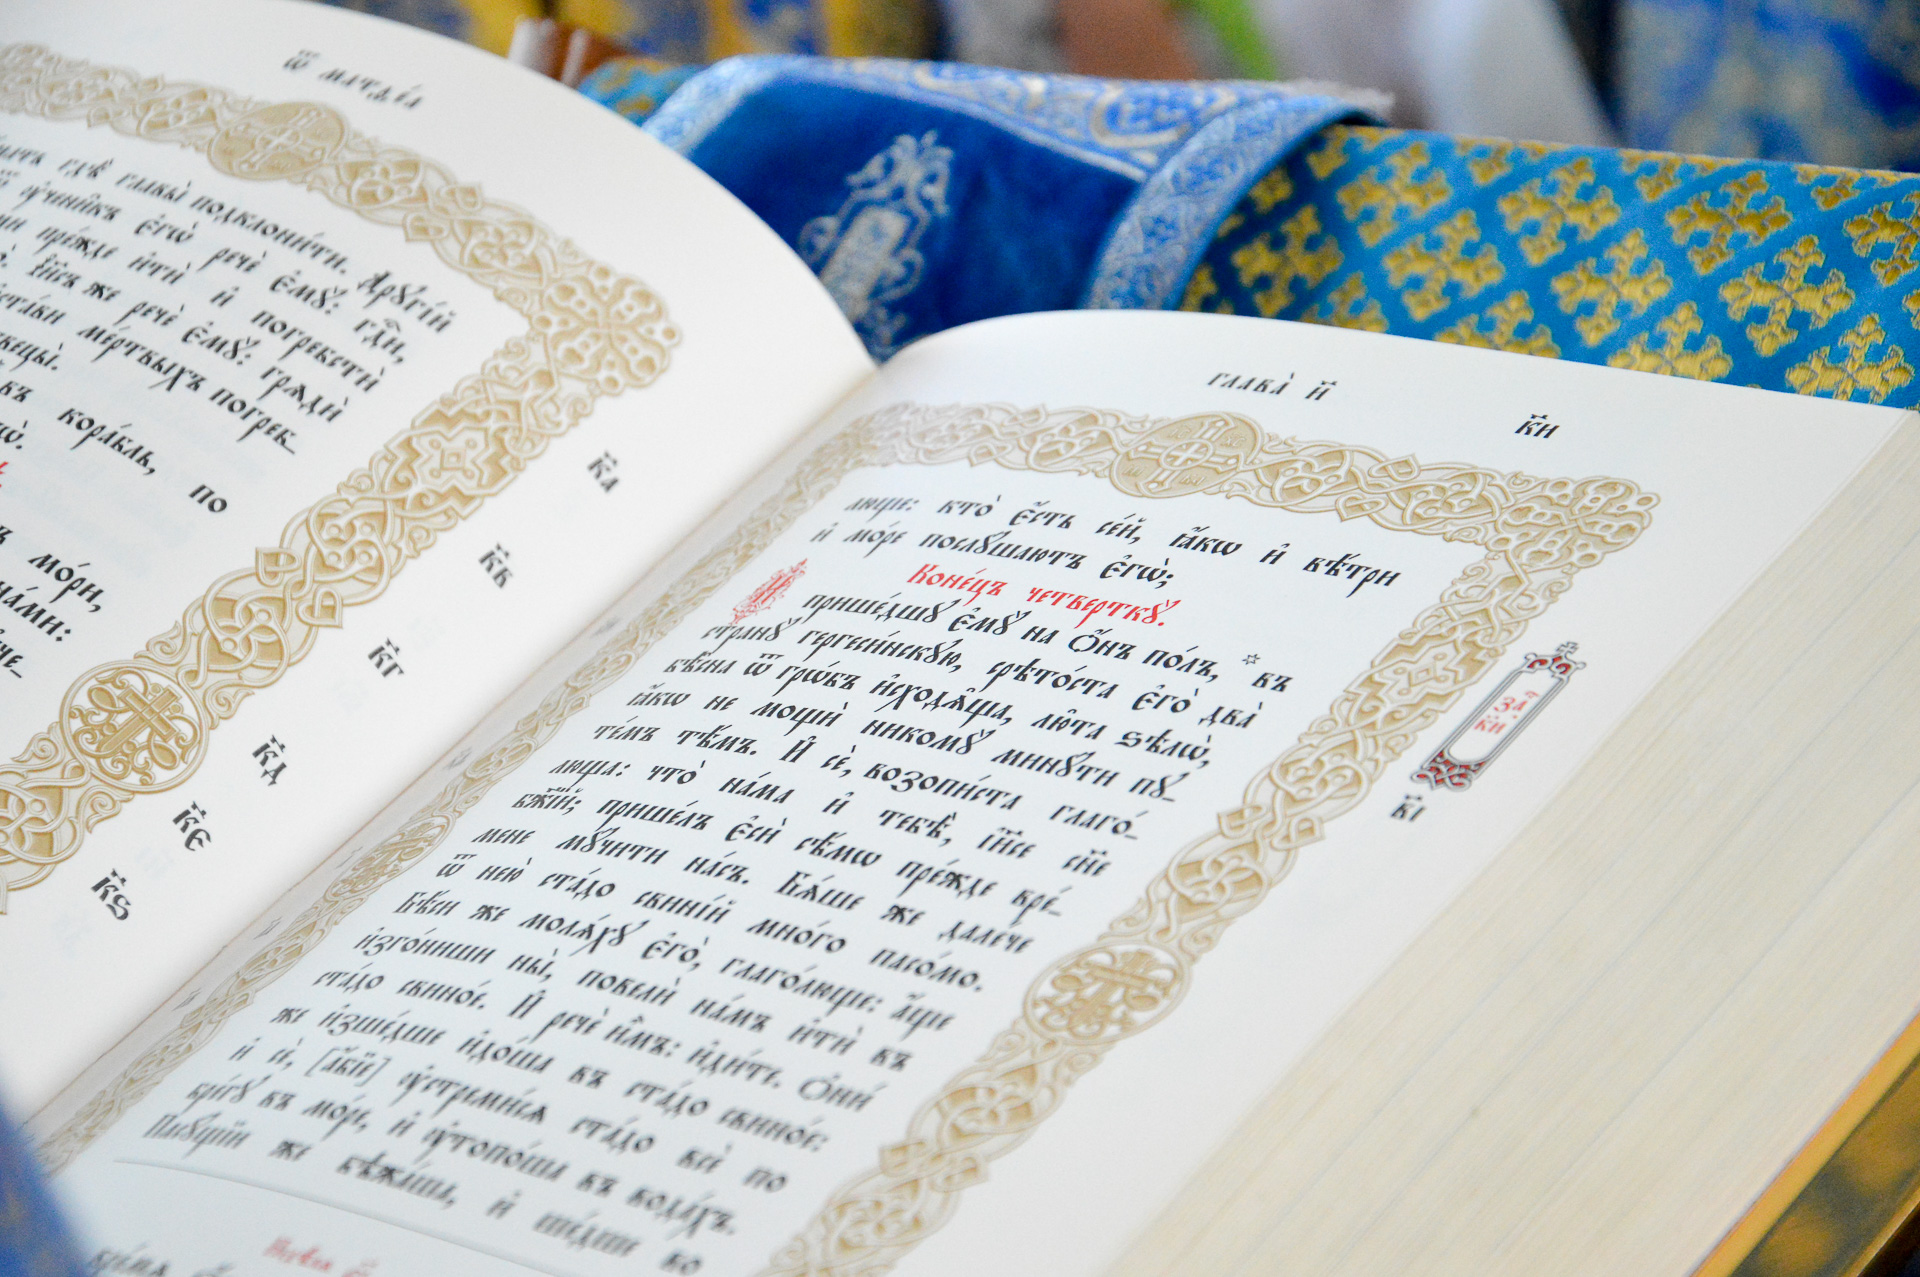 ѿ матѳе́а
гдѣ̀ главы̀ подклони́ти. Дрꙋгі́й
ᲂу҆чени̑къ є҆гѡ̀ речѐ є҆мꙋ̀: гдⷭ҇и,
пре́жде и҆тѝ и҆ погребстѝ
і҆и҃съ же речѐ є҆мꙋ̀: грѧдѝ
ме́ртвыхъ погреб-
мертвецы̀.
въ кора́бль, по
мо́ри,
к҃а
к҃в
к҃г
к҃д
к҃є
к҃ѕ
глава̀ и҃
к҃и
люще: кто̀ є҆́сть се́й, ꙗ҆́кѡ и҆ вѣ́три
и҆ мо́ре послꙋ́шаютъ є҆гѡ̀;
Коне́цъ четверткꙋ̀.
И҆ прише́дшꙋ є҆мꙋ̀ на ѻ҆́нъ по́лъ, въ
странꙋ̀ гергеси́нскꙋю, срѣто́ста є҆го̀ два̀
бѣ̑сна ѿ грѡ́бъ и҆сходѧ̑ща, лю̑та ѕѣлѡ̀,
ꙗ҆́кѡ не мощѝ никомꙋ̀ минꙋ́ти пꙋ-
те́мъ тѣ́мъ. И҆ сѐ, возопи́ста глаго́-
люща: что̀ на́ма и҆ тебѣ̀, і҆и҃се сн҃е
бж҃їй; прише́лъ є҆сѝ сѣ́мѡ пре́жде вре́-
мене мꙋ́чити на́съ. Бѧ́ше же дале́че
ѿ нею̀ ста́до свині́й мно́го пасо́мо.
Бѣ́си же молѧ́хꙋ є҆го̀, глаго́люще: а҆́ще
и҆зго́ниши ны̀, повелѝ на́мъ и҆тѝ въ
ста́до свино́е. И҆ речѐ и҆̀мъ: и҆ди́те. Ѻ҆ни́
же и҆зше́дше и҆до́ша въ ста́до свино́е:
и҆ сѐ, [а҆́бїе] ᲂу҆стреми́сѧ ста́до всѐ по
бре́гꙋ въ мо́ре, и҆ ᲂу҆топо́ша въ вода́хъ.
Пасꙋ́щїи же бѣжа́ша, и҆ ше́дше во
за҇
к҃и
к҃і